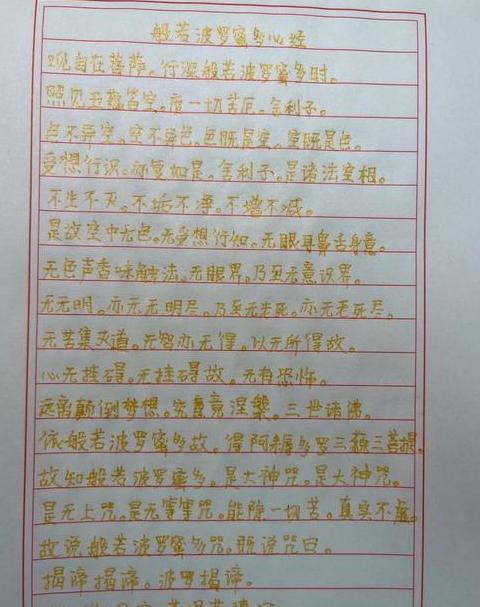 般若波罗蜜多心经
观自在菩萨。行深般若波罗蜜多时。
照见五蕴皆空。度一切苦厄。舍利子。
色不异空。空不异色。色既是空。空既是色。
受想行识。亦复如是。舍利子。是诸法空相。
不生不灭。不垢不净。不增不减。
是故空中无色。无受想行知。无眼耳鼻舌身意。
无色声香味触法。无眼界。乃至无意识界。
无无明。亦无无明尽。乃至无老死。亦无老死尽。
无苦集灭道。无智亦无得。以无所得故。
心无挂碍。无挂碍故。无有恐怖。
远离颠倒梦想。究竟涅槃。三世诸佛。
依般若波罗蜜多故。得阿耨多罗三藐三菩提。
故知般若波罗蜜多。是大神咒。是大神咒。
是无上咒。是无等等咒。能除一切苦。真实不虚。
故说般若波罗蜜多咒。既说咒曰。
揭谛揭谛。波罗揭谛。